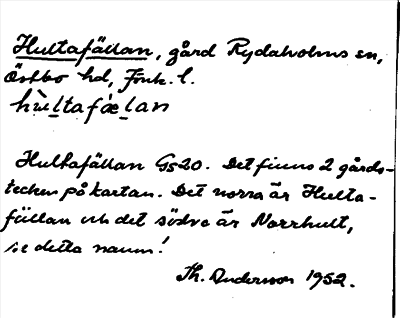 Hultafällan, gård Rydaholms sn,
Östbo hd, Jönk. l.
hùltafæ̀lan
Hultafällan Gs20. Det finns 2 gårds-
tecken på kartan. Det norra är Hulta-
fällan och det södra är Norrhult,
se detta namn!
Th. Andersson 1952.